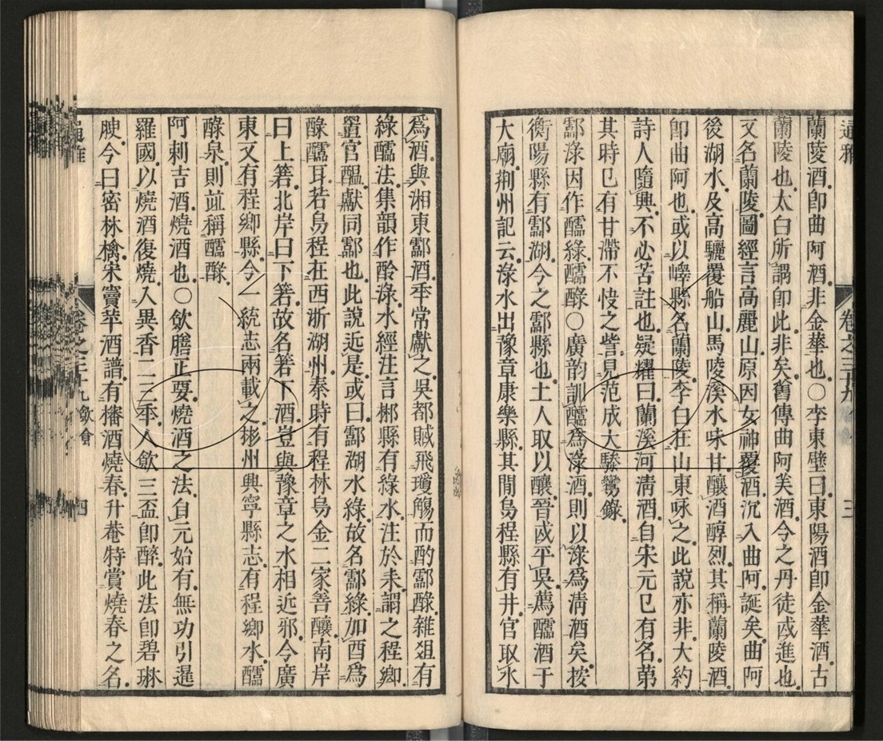 通雅
卷之三十九
三
蘭陵酒卽曲阿酒非金華也○李東壁曰東陽酒卽金華酒古
蘭陵也太白所謂卽此非矣舊傳曲阿美酒今之丹徒或進也
又名蘭陵圖經言高麗山原因女神覆酒沉入曲阿誕矣曲阿
後湖水及高驪覆船山馬陵溪水味甘釀酒醇烈其稱蘭陵酒
卽曲阿也或以嶧縣名蘭陵李白在山東咏之此說亦非大約
詩人隨興不必苦註也疑耀曰蘭溪河淸酒自宋元巳有名第
其時巳有甘滯不快之訾見范成大驂鸞錄
酃淥因作醽綠醽醁○廣韵訓醽爲淥酒則以淥爲淸酒矣按
衡陽縣有酃湖今之酃縣也土人取以釀晉武平吳薦醽酒于
大廟荆州記云淥水出豫章康樂縣其閒烏程縣有井官取水
爲酒與湘東酃酒季常獻之吳都賦飛瓊觴而酌酃醁雜俎有
綠醽法集韻作酃淥水經注言郴縣有綠水注於耒謂之程鄉
置官醞獻同酃也此說近是或曰酃湖水綠故名酃綠加酉爲
醁醽耳若烏程在西浙湖州秦時有程林烏金二家善釀南岸
曰上箬北岸曰下箬故名箬下酒豈與豫章之水相近邪今廣
東又有程鄉縣今一統志兩載之郴州興寧縣志有程鄉水醽
醁泉則竝稱醽醁
阿剌吉酒燒酒也○飲膳正要燒酒之法自元始有無功引暹
羅國以燒酒復燒入異香二三季人飲三盃卽醉此法卽碧琳
腴今曰密林檎宋竇苹酒譜有橎酒燒春升菴特賞燒春之名
通雅
卷之三十九飲食
四